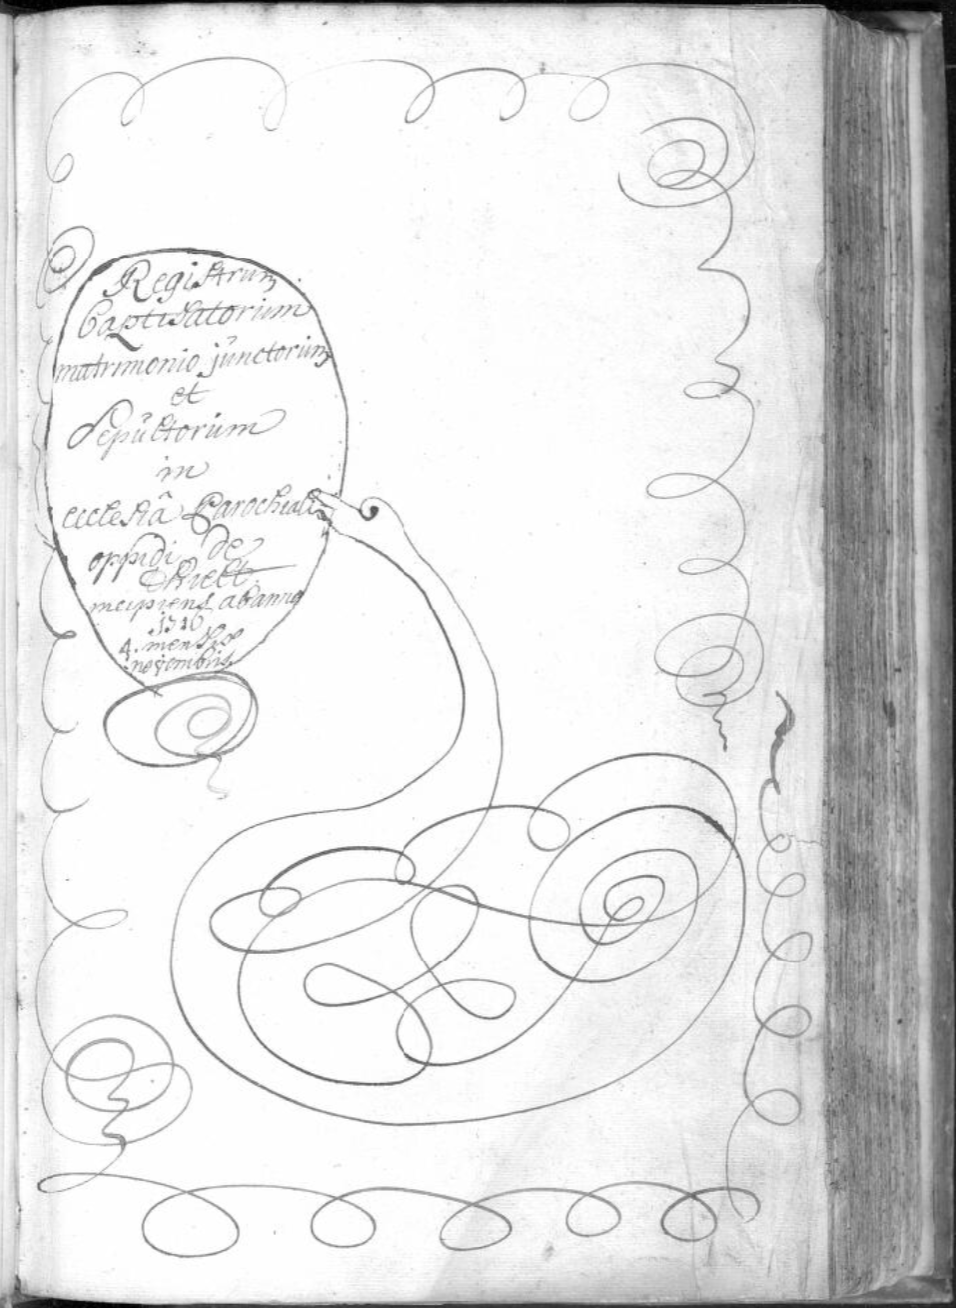 Registrum
baptisatorum
matrimonio junctorum
et
Sepultorum
in
ecclesiâ Parochiali
oppidi de
incipiens ab anno
1716
4. mensis
novembris